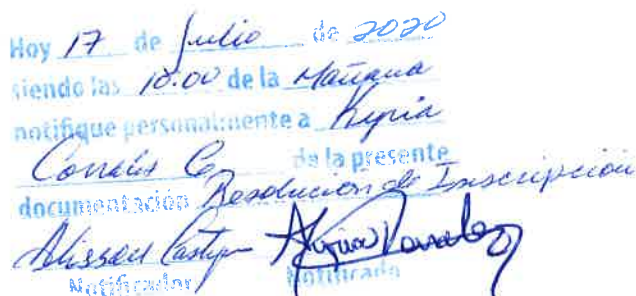 Hoy 17 de Julio de 2020
siendo las 10:00 de la Mañana
notifique personalmente a Kyria
Corrales C de la presente
documentación Resolucion de Inscripción
Alisson
Notificador Notificado